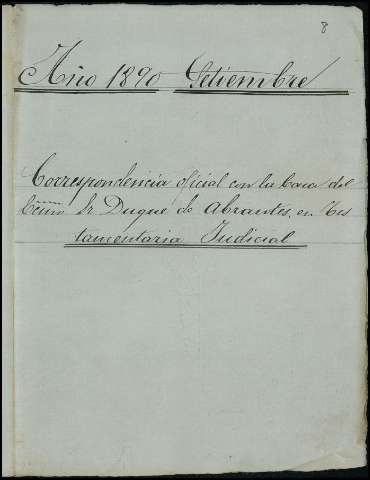 8
Año 1890 Setiembre
Correspondencia oficial con la Casa del
Excmo Sr Duque de Abrantes, en Tes
tamentaria Judicial